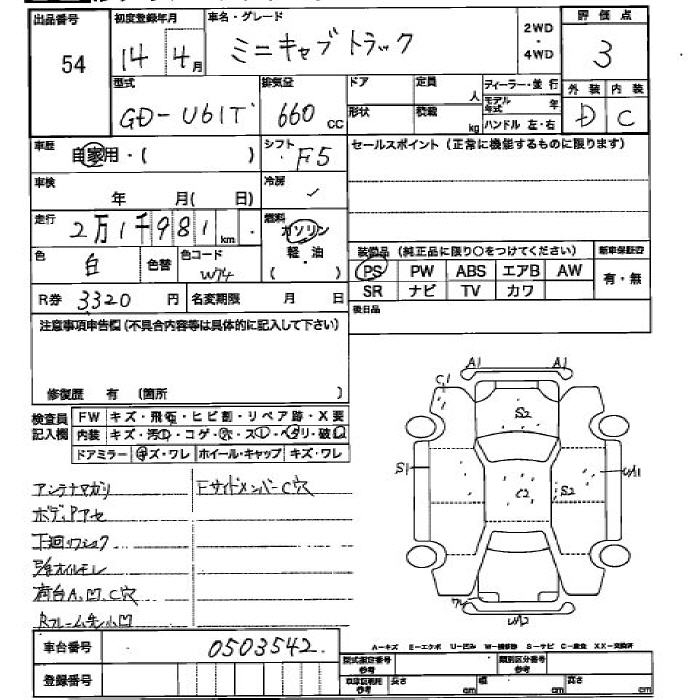 出品番号
54
初度登録年月
14年 4月
車名・グレード
ミニキャブトラック
2WD
・
4WD
評価点
3
型式
GD-U61T
排気量
660 cc
ドア
定員
人
形状
積載
kg
ディーラー・並行
モデル年式 年
ハンドル 左・右
外装
D
内装
C
車歴
自家用・( )
シフト
F5
セールスポイント (正常に機能するものに限ります)
車検
年 月( 日)
冷房
走行
2万1千981 km
燃料
ガソリン
軽・油
色
白
色替
色コード
W74
装備品 (純正品に限り○をつけてください)
新車保証書
PS PW ABS エアB AW
有・無
SR ナビ TV カワ
R券 3320 円
名変期限 月 日
後日品
注意事項申告欄(不具合内容等は具体的に記入して下さい)
修復歴 有 (箇所 )
検査員
記入欄
FW キズ・飛石・ヒビ割・リペア跡・X要
内装 キズ・汚レ・コゲ・穴・スレ・ヘタリ・破レ
ドアミラー キズ・ワレ ホイール・キャップ キズ・ワレ
アンテナマガリ
FサイドメンバーC穴
ボディPアセ
下廻ワシュク
荷台A、凹、C穴
Rフレーム先小凹
A1
A1
C1
S2
S1
C2
S2
UA1
ワレ
UA2
車台番号
0503542
登録番号
A-キズ E-エクボ U-凹ミ W-補修跡 S-サビ C-腐食 XX-交換済
型式指定番号
参考
類別区分番号
参考
参考
長さ cm
幅 cm
高さ cm